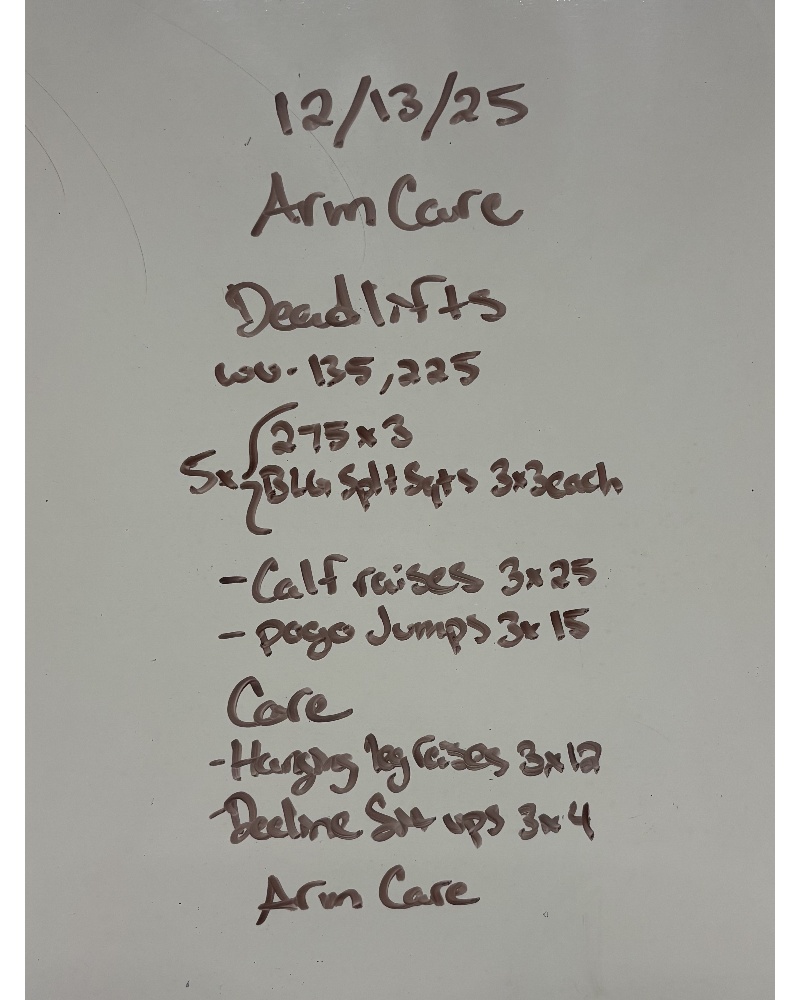 12/13/25
Arm Care
Deadlifts
wu- 135, 225
5x { 275 x 3
BLG Splt Sqts 3x3 each
- Calf raises 3x25
- pogo Jumps 3x 15
Core
- Hanging leg raises 3x12
- Decline Sit ups 3x4
Arm Care